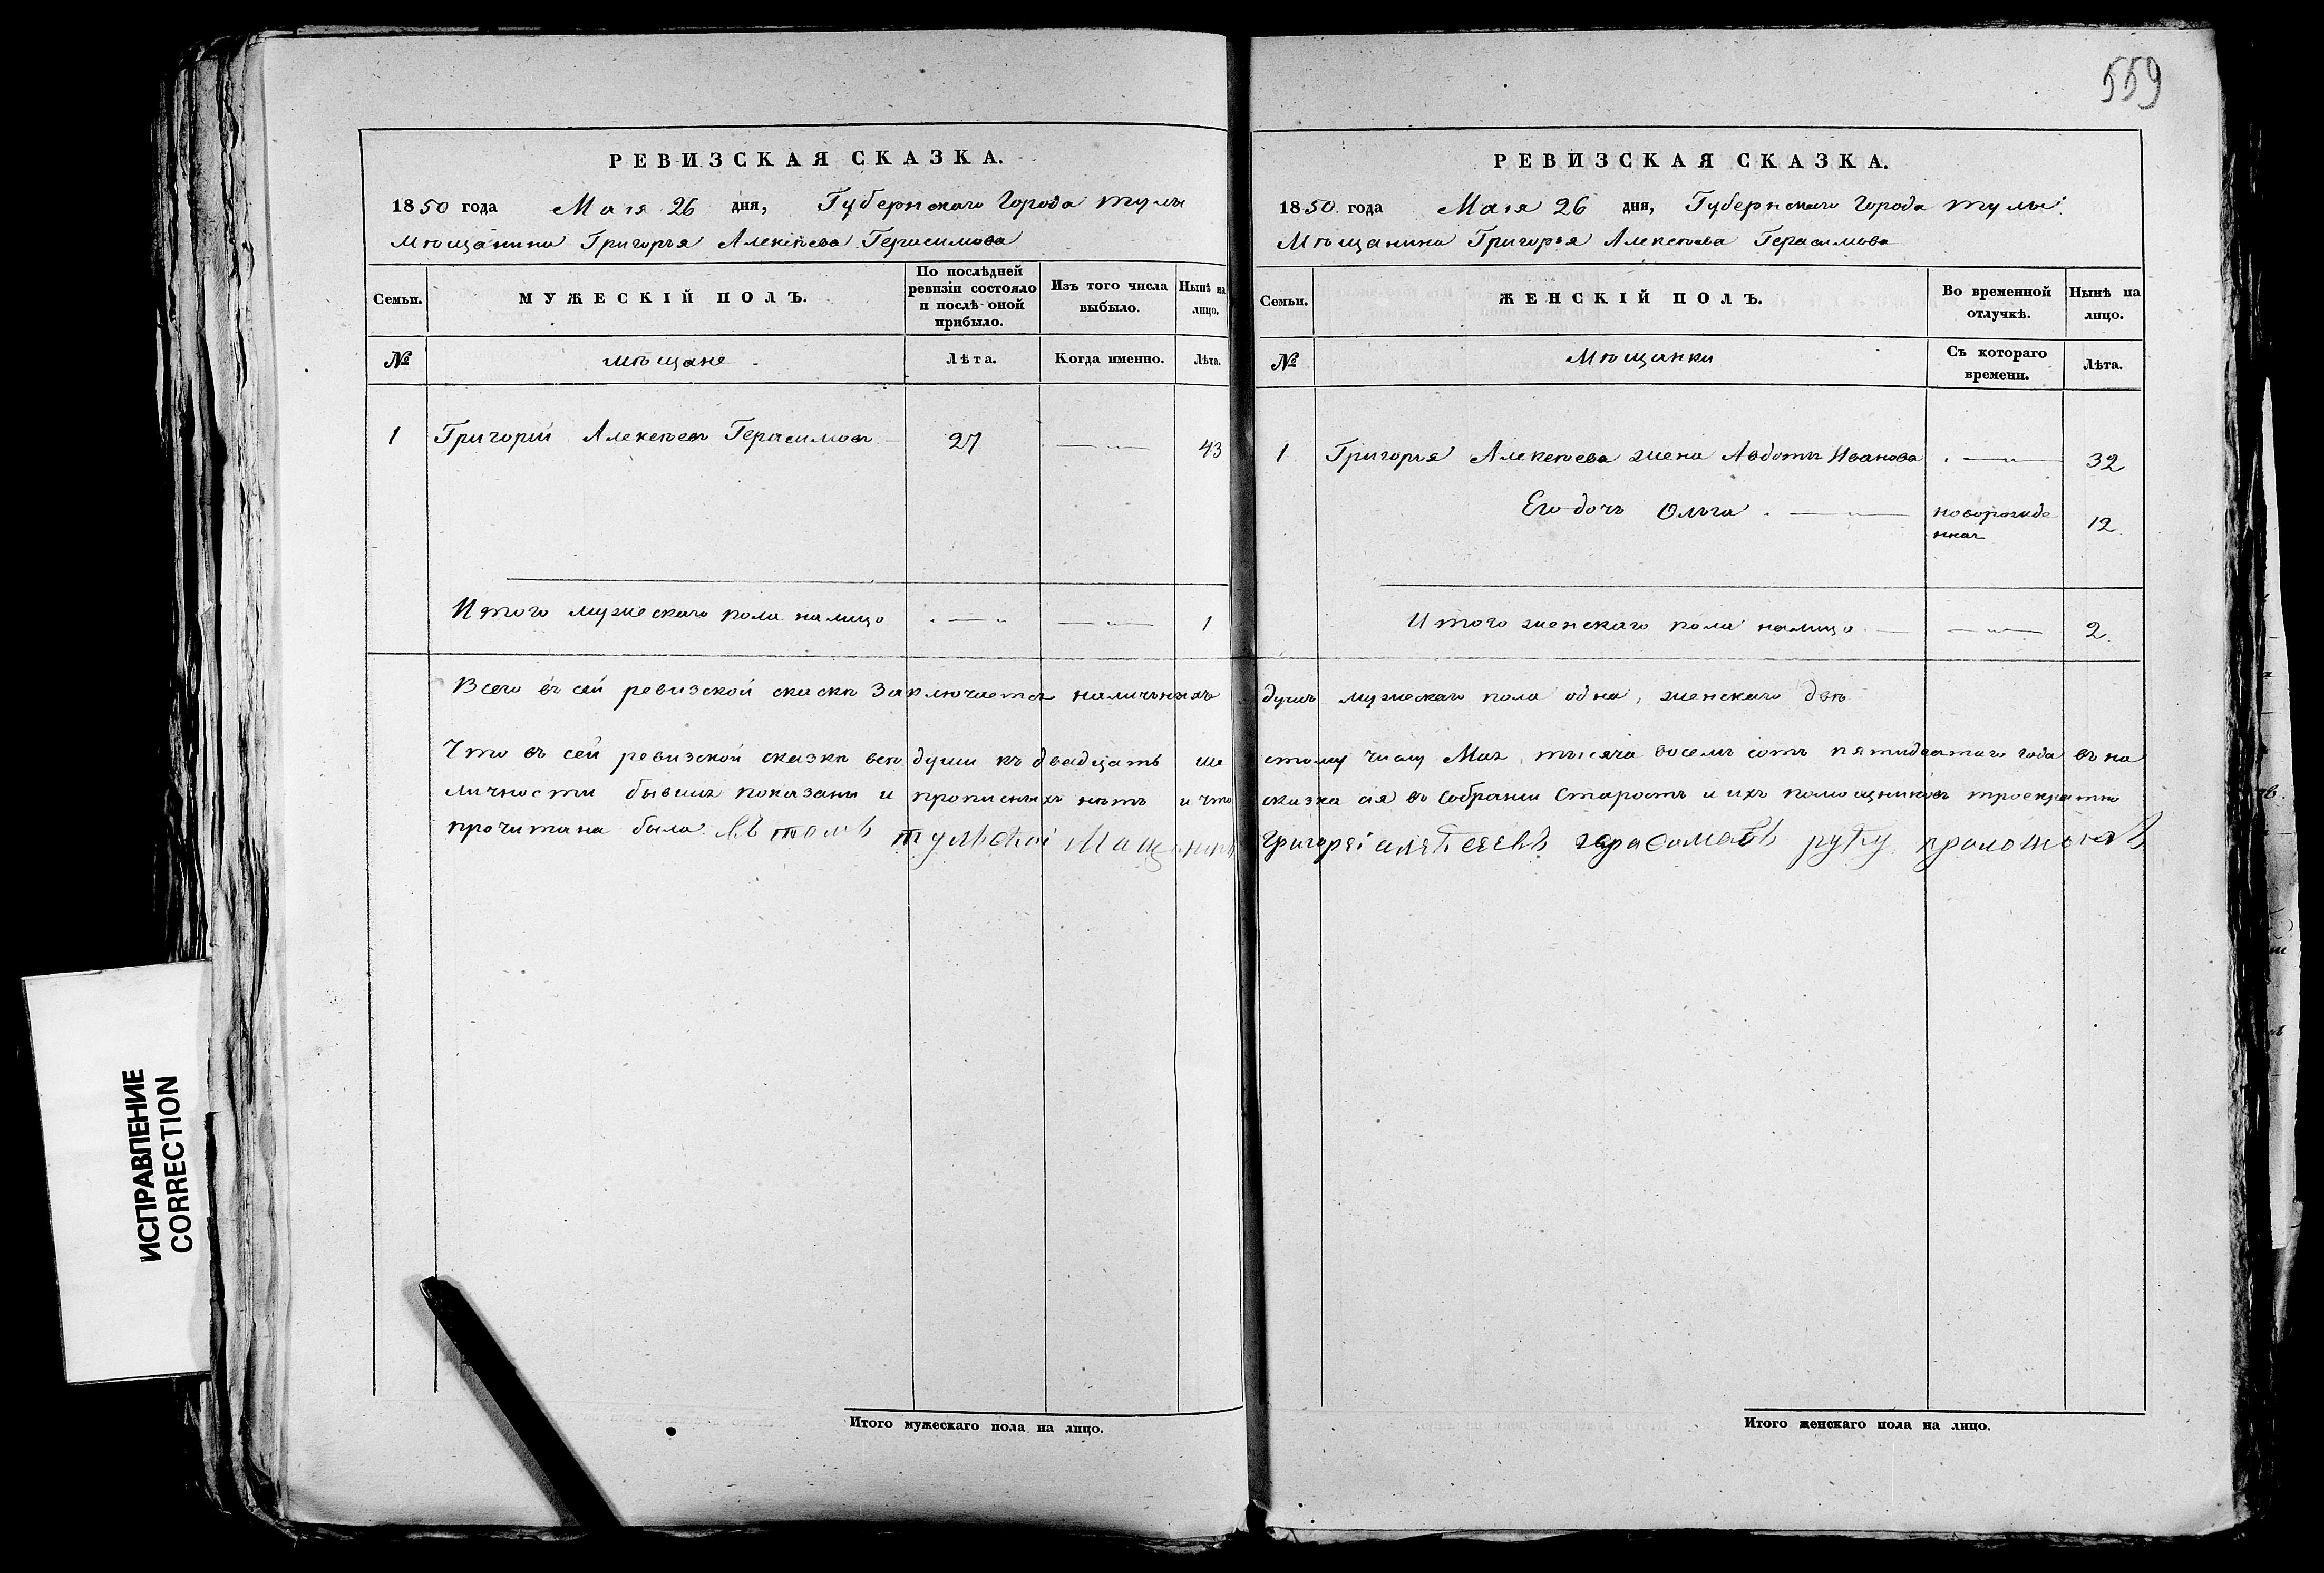 559
РЕВИЗСКАЯ СКАЗКА.
1850 года Маія 26 дня, Губернскаго Города Тулы
Мѣщанина Григорья Алексѣева Герасимова
Семьи.
МУЖЕСКІЙ ПОЛЪ.
По послѣдней
ревизіи состояло
и послѣ оной
прибыло.
Изъ того числа
выбыло.
Нынѣ на
лицо.
№
мѣщане
Лѣта.
Когда именно.
Лѣта.
1 Григорій Алексѣевъ Герасимовъ 27 43
Итого мужескаго пола налицо 1
Всего въ сей ревизской скаскѣ заключается наличныхъ
Что въ сей ревизской сказкѣ всѣ души къ двадцать ше
личности бывшія показаны и прописныхъ нѣтъ и что
прочитана была. Въ томъ тулской Мащанинъ
РЕВИЗСКАЯ СКАЗКА.
1850 года Маія 26 дня, Губернскаго Города Тулы
Мѣщанина Григорья Алексѣева Герасимова
Семьи.
ЖЕНСКІЙ ПОЛЪ.
Во временной
отлучкѣ.
Нынѣ на
лицо.
№
Мѣщанки
Съ котораго
времени.
Лѣта.
1 Григорья Алексѣева жена Авдотья Иванова 32
Его дочь Ольга новорожде
нная 12
Итого женскаго пола налицо 2
душъ мужескаго пола одна, женскаго двѣ
стому числу Мая тысяча восемь сотъ пятидесятаго года въ на
сказка сія въ собраніи Старостъ и ихъ помощниковъ троекратно
Григорей герасимовъ руку
Итого мужескаго пола на лицо.
Итого женскаго пола на лицо.
ИСПРАВЛЕНИЕ
CORRECTION